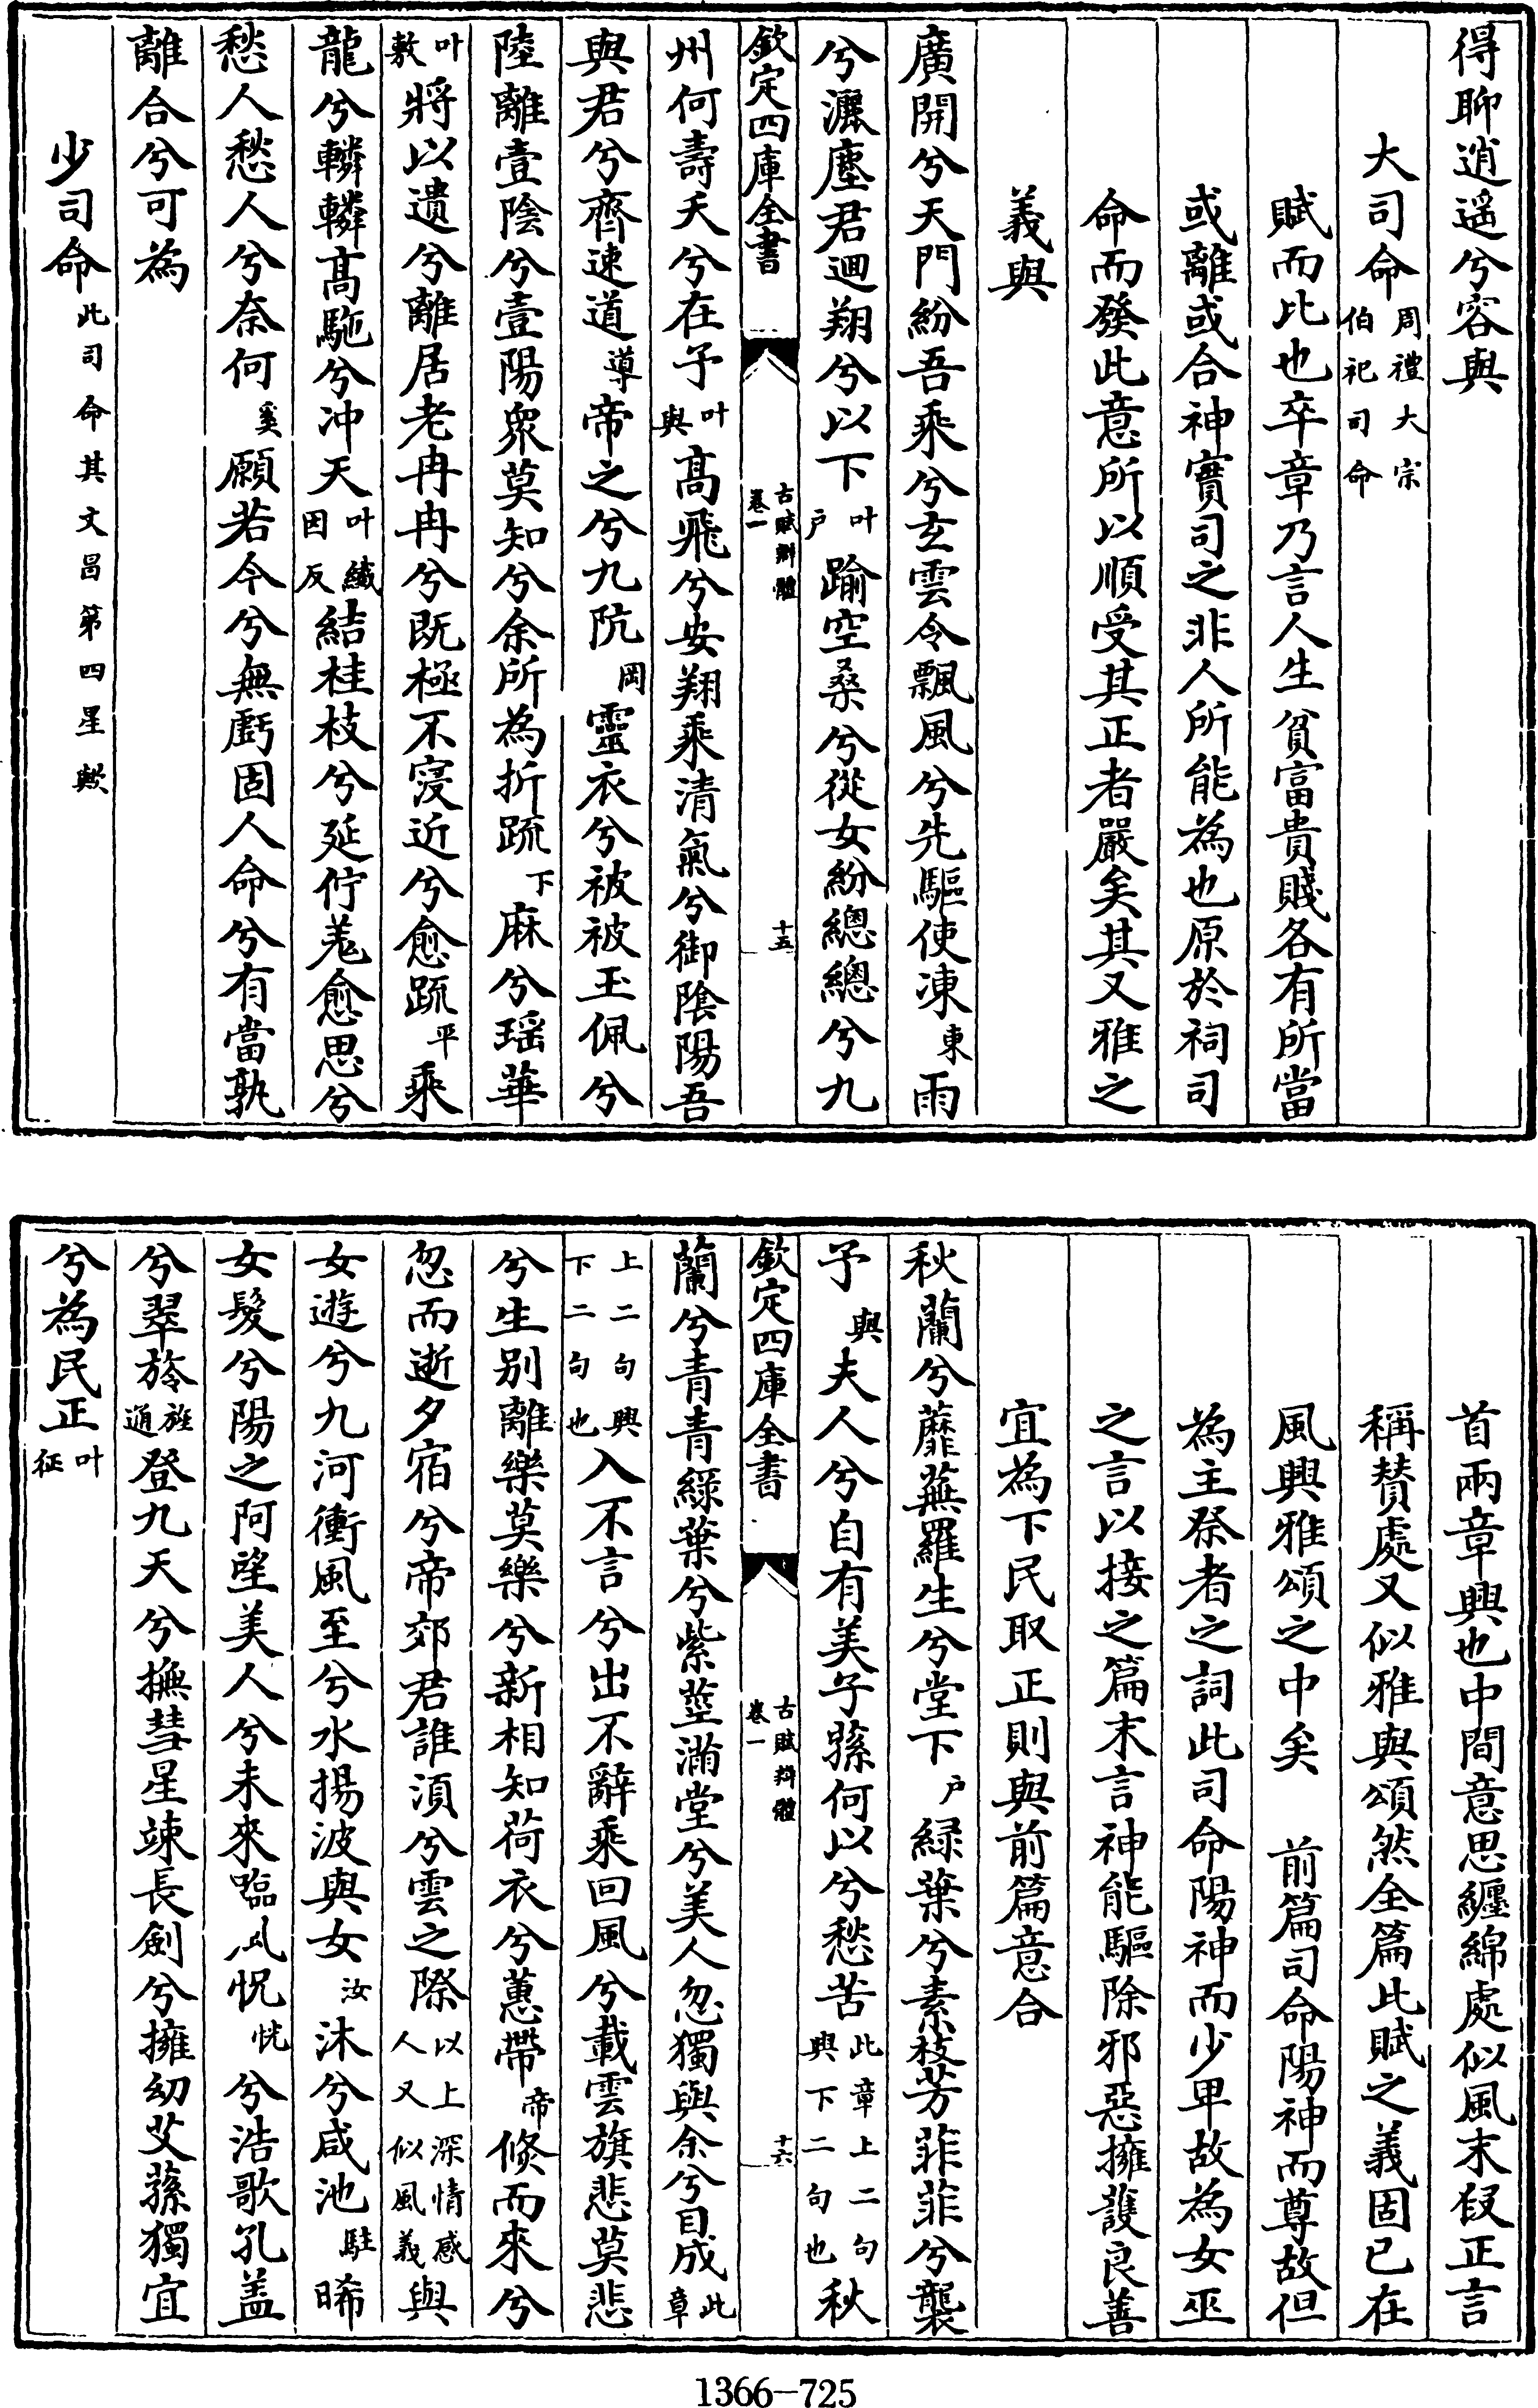 得聊逍遥兮容與
大司命周禮大宗伯祀司命
賦而比也卒章乃言人生貧富貴賤各有所當
或離或合神實司之非人所能為也原於祠司
命而發此意所以順受其正者嚴矣其又雅之
義與
廣開兮天門紛吾乘兮玄雲令飄風兮先驅使涷東雨
兮灑塵君迴翔兮以下叶户踰空桑兮從女紛總總兮九
欽定四庫全書
古賦辯體
卷一
十五
州何壽夭兮在予叶與高飛兮安翔乘清氣兮御隂陽吾
與君兮齊速道導帝之兮九阬岡靈衣兮被被玉佩兮
陸離壹隂兮壹陽衆莫知兮余所為折疏下麻兮瑶華
叶敷將以遺兮離居老冉冉兮既極不寖近兮愈疏平乘
龍兮轔轔高駝兮冲天叶鐵因反結桂枝兮延佇羌愈思兮
愁人愁人兮奈何奚願若今兮無虧固人命兮有當孰
離合兮可為
少司命此司命其文昌第四星歟
首兩章興也中間意思纏綿處似風末段正言
稱賛處又似雅與頌然全篇此賦之義固已在
風興雅頌之中矣 前篇司命陽神而尊故但
為主祭者之詞此司命陽神而少卑故為女巫
之言以接之篇末言神能驅除邪惡擁護良善
宜為下民取正則與前篇意合
秋蘭兮蘼蕪羅生兮堂下户緑葉兮素枝芳菲菲兮襲
予與夫人兮自有美子蓀何以兮愁苦此章上二句興下二句也秋
欽定四庫全書
古賦辯體
卷一
十六
蘭兮青青緑葉兮紫莖滿堂兮美人忽獨與余兮目成此章
上二句興下二句也入不言兮出不辭乘回風兮載雲旗悲莫悲
兮生别離樂莫樂兮新相知荷衣兮蕙帶帝倏而來兮
忽而逝夕宿兮帝郊君誰湏兮雲之際以上深情感人又似風義與
女遊兮九河衝風至兮水揚波與女汝沐兮咸池駐晞
女髮兮陽之阿望美人兮未來臨風怳恍兮浩歌孔盖
兮翠旍旌通登九天兮撫彗星竦長劍兮擁幼艾蓀獨宜
兮為民正叶征
1366-725